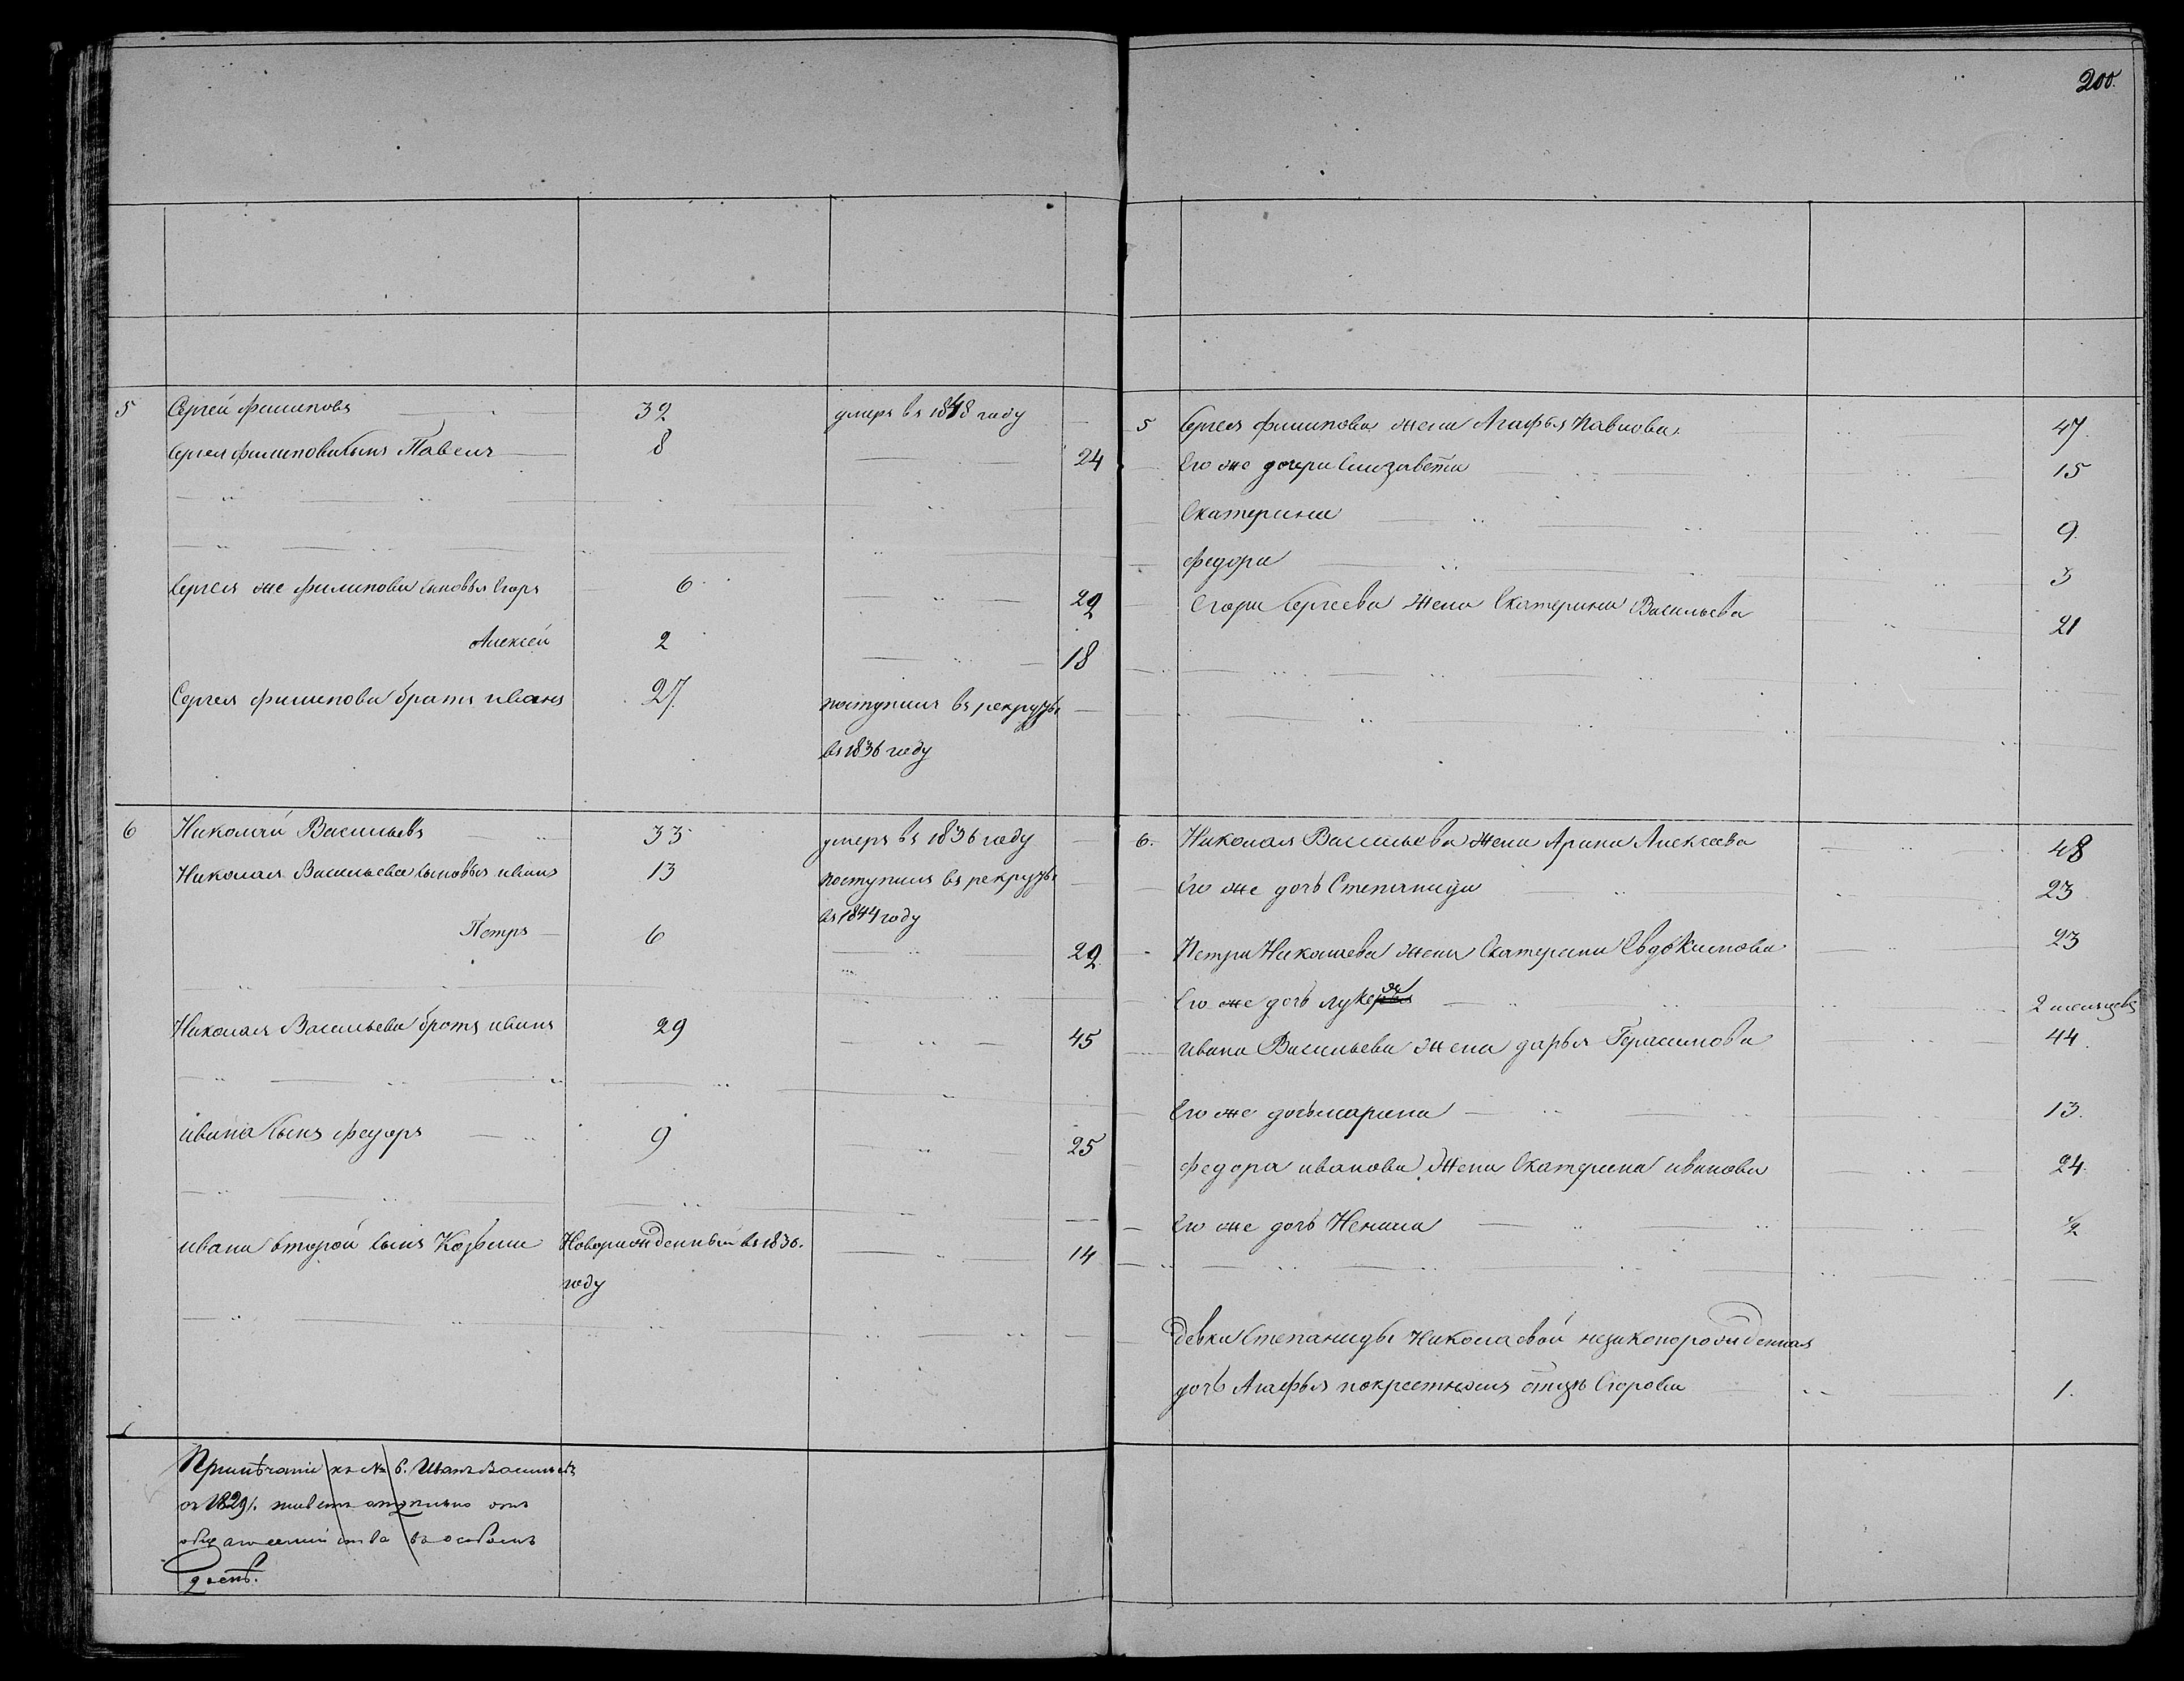 200.
5 Сергей Филиповъ 32 умеръ въ 1848 году
Сергея Филипова сынъ Павелъ 8 24
Сергея же Филипова сыновья Егоръ 6 22
Алексей 2 18
Сергея Филипова братъ иванъ 27 поступилъ въ рекруты
въ 1836 году
6 Николай Васильевъ 33 умеръ въ 1836 году
Николая Васильева сыновья иванъ 13 поступилъ въ рекруты
въ 1844 году
Петръ 6 22
Николая Васильева братъ иванъ 29 45
ивана сынъ Федоръ 9 25
ивана второй сынъ Козьма Новорожденный въ 1836. 14
году
Примѣчанiе къ № 6. Иванъ Васильевъ
съ 1829 г. живетъ отдельно отъ
въ особомъ
5 Сергея Филипова жена Агафья Павлова 47
Его же дочери Елизавета 15
Екатерина 9
Федора 3
Егора Сергеева жена Екатерина Васильева 21
6. Николая Васильева жена Арина Алексеева 48
Его же дочь Степанида 23
Петра Николаева жена Екатерина Евдокимова 23
Его же дочь Лукерья 2 месяцевъ
ивана Васильева жена дарья Герасимова 44
Его же дочь марина 13
Федора иванова жена Екатерина иванова 24
Его же дочь Ненила ½
девки Степаниды Николаевой незаконорожденная
дочь Агафья покрестному отцу Егорова 1.